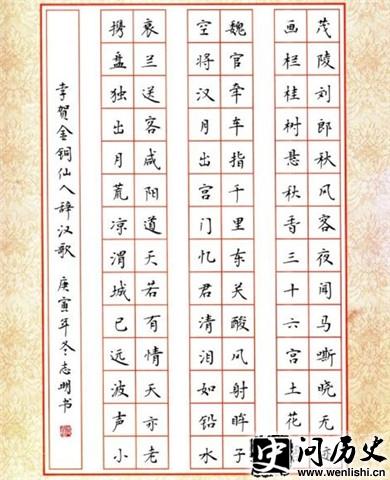 茂陵刘郎秋风客夜闻马嘶晓无迹
画栏桂树悬秋香三十六宫土花
魏官牵车指千里东关酸风射眸子
空将汉月出宫门忆君清泪如铅水
衰兰送客咸阳道天若有情天亦老
携盘独出月荒凉渭城已远波声小
李贺金铜仙人辞汉歌 庚寅年冬志明书
问历史
www.wenlishi.cn